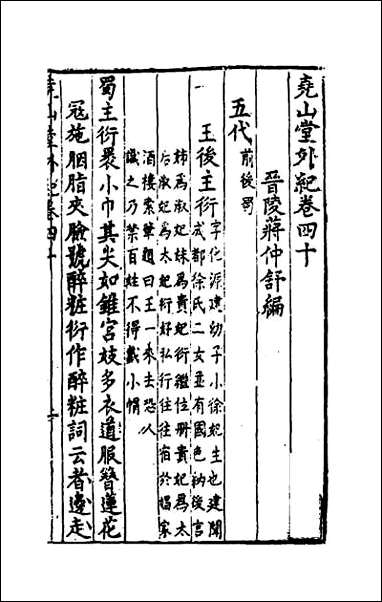 堯山堂外紀卷四十
晉陵蔣仲舒編
五代 前後蜀
王後主衍 字化源建幼子小徐妃生也建聞
成都徐氏二女並有國色納後宮
姊為淑妃妹為貴妃衍繼位冊貴妃為太
后淑妃為太妃衍好私行往往宿於倡家
酒樓索筆題曰王一來去恐人
識之乃禁百姓不得戴小帽
蜀主衍裹小巾其尖如錐宮妓多衣道服簪蓮花
冠施胭脂夾臉號醉粧衍作醉粧詞云者邊走
堯山堂外紀卷四十 一